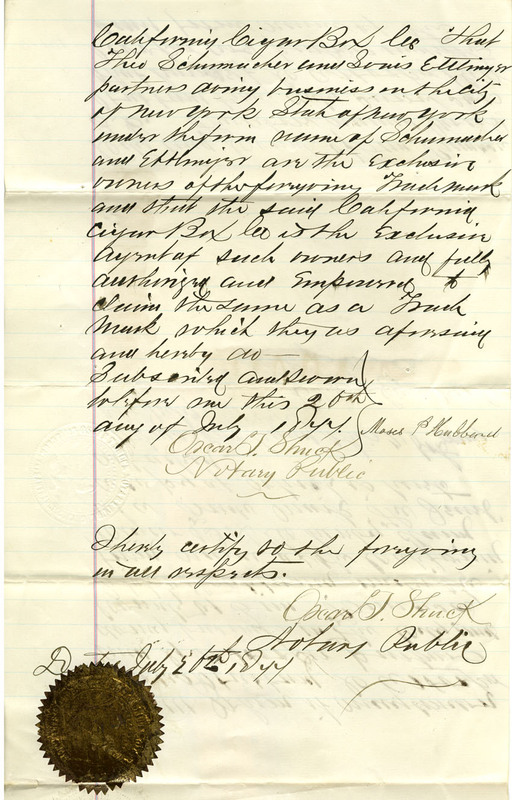 California Cigar Box Co That
Theo Schumacher and Louis Ettlinger
partners doing business in the city
of New York State of New York
under the firm name of Schumacher
and Ettlinger are the Exclusive
owners of the foregoing Trade mark
and that the said California
Cigar Box Co is the Exclusive
Agent of such owners and fully
authorized and Empowered to
claim the same as a Trade
Mark which they as aforesaid
and hereby do—
Subscribed and sworn
before me this 20th
day of July 1877. Moses P Hubbard
Oscar T. Shuck
Notary Public
I hereby certify to the foregoing
in all respects.
Oscar T. Shuck
Notary Public
July 20th, 1877